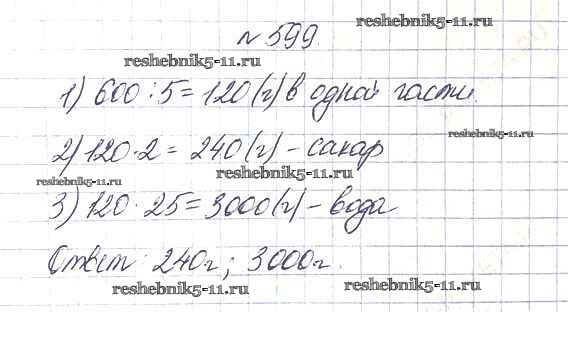 № 599.
reshebnik5-11.ru
reshebnik5-11.ru
1) 600 : 5 = 120 (г) в одной части.
reshebnik5-11.ru
2) 120 · 2 = 240 (г) - сахар
reshebnik5-11.ru
reshebnik5-11.ru
3) 120 · 25 = 3000 (г) - вода
Ответ: 240 г; 3000 г.
reshebnik5-11.ru
reshebnik5-11.ru